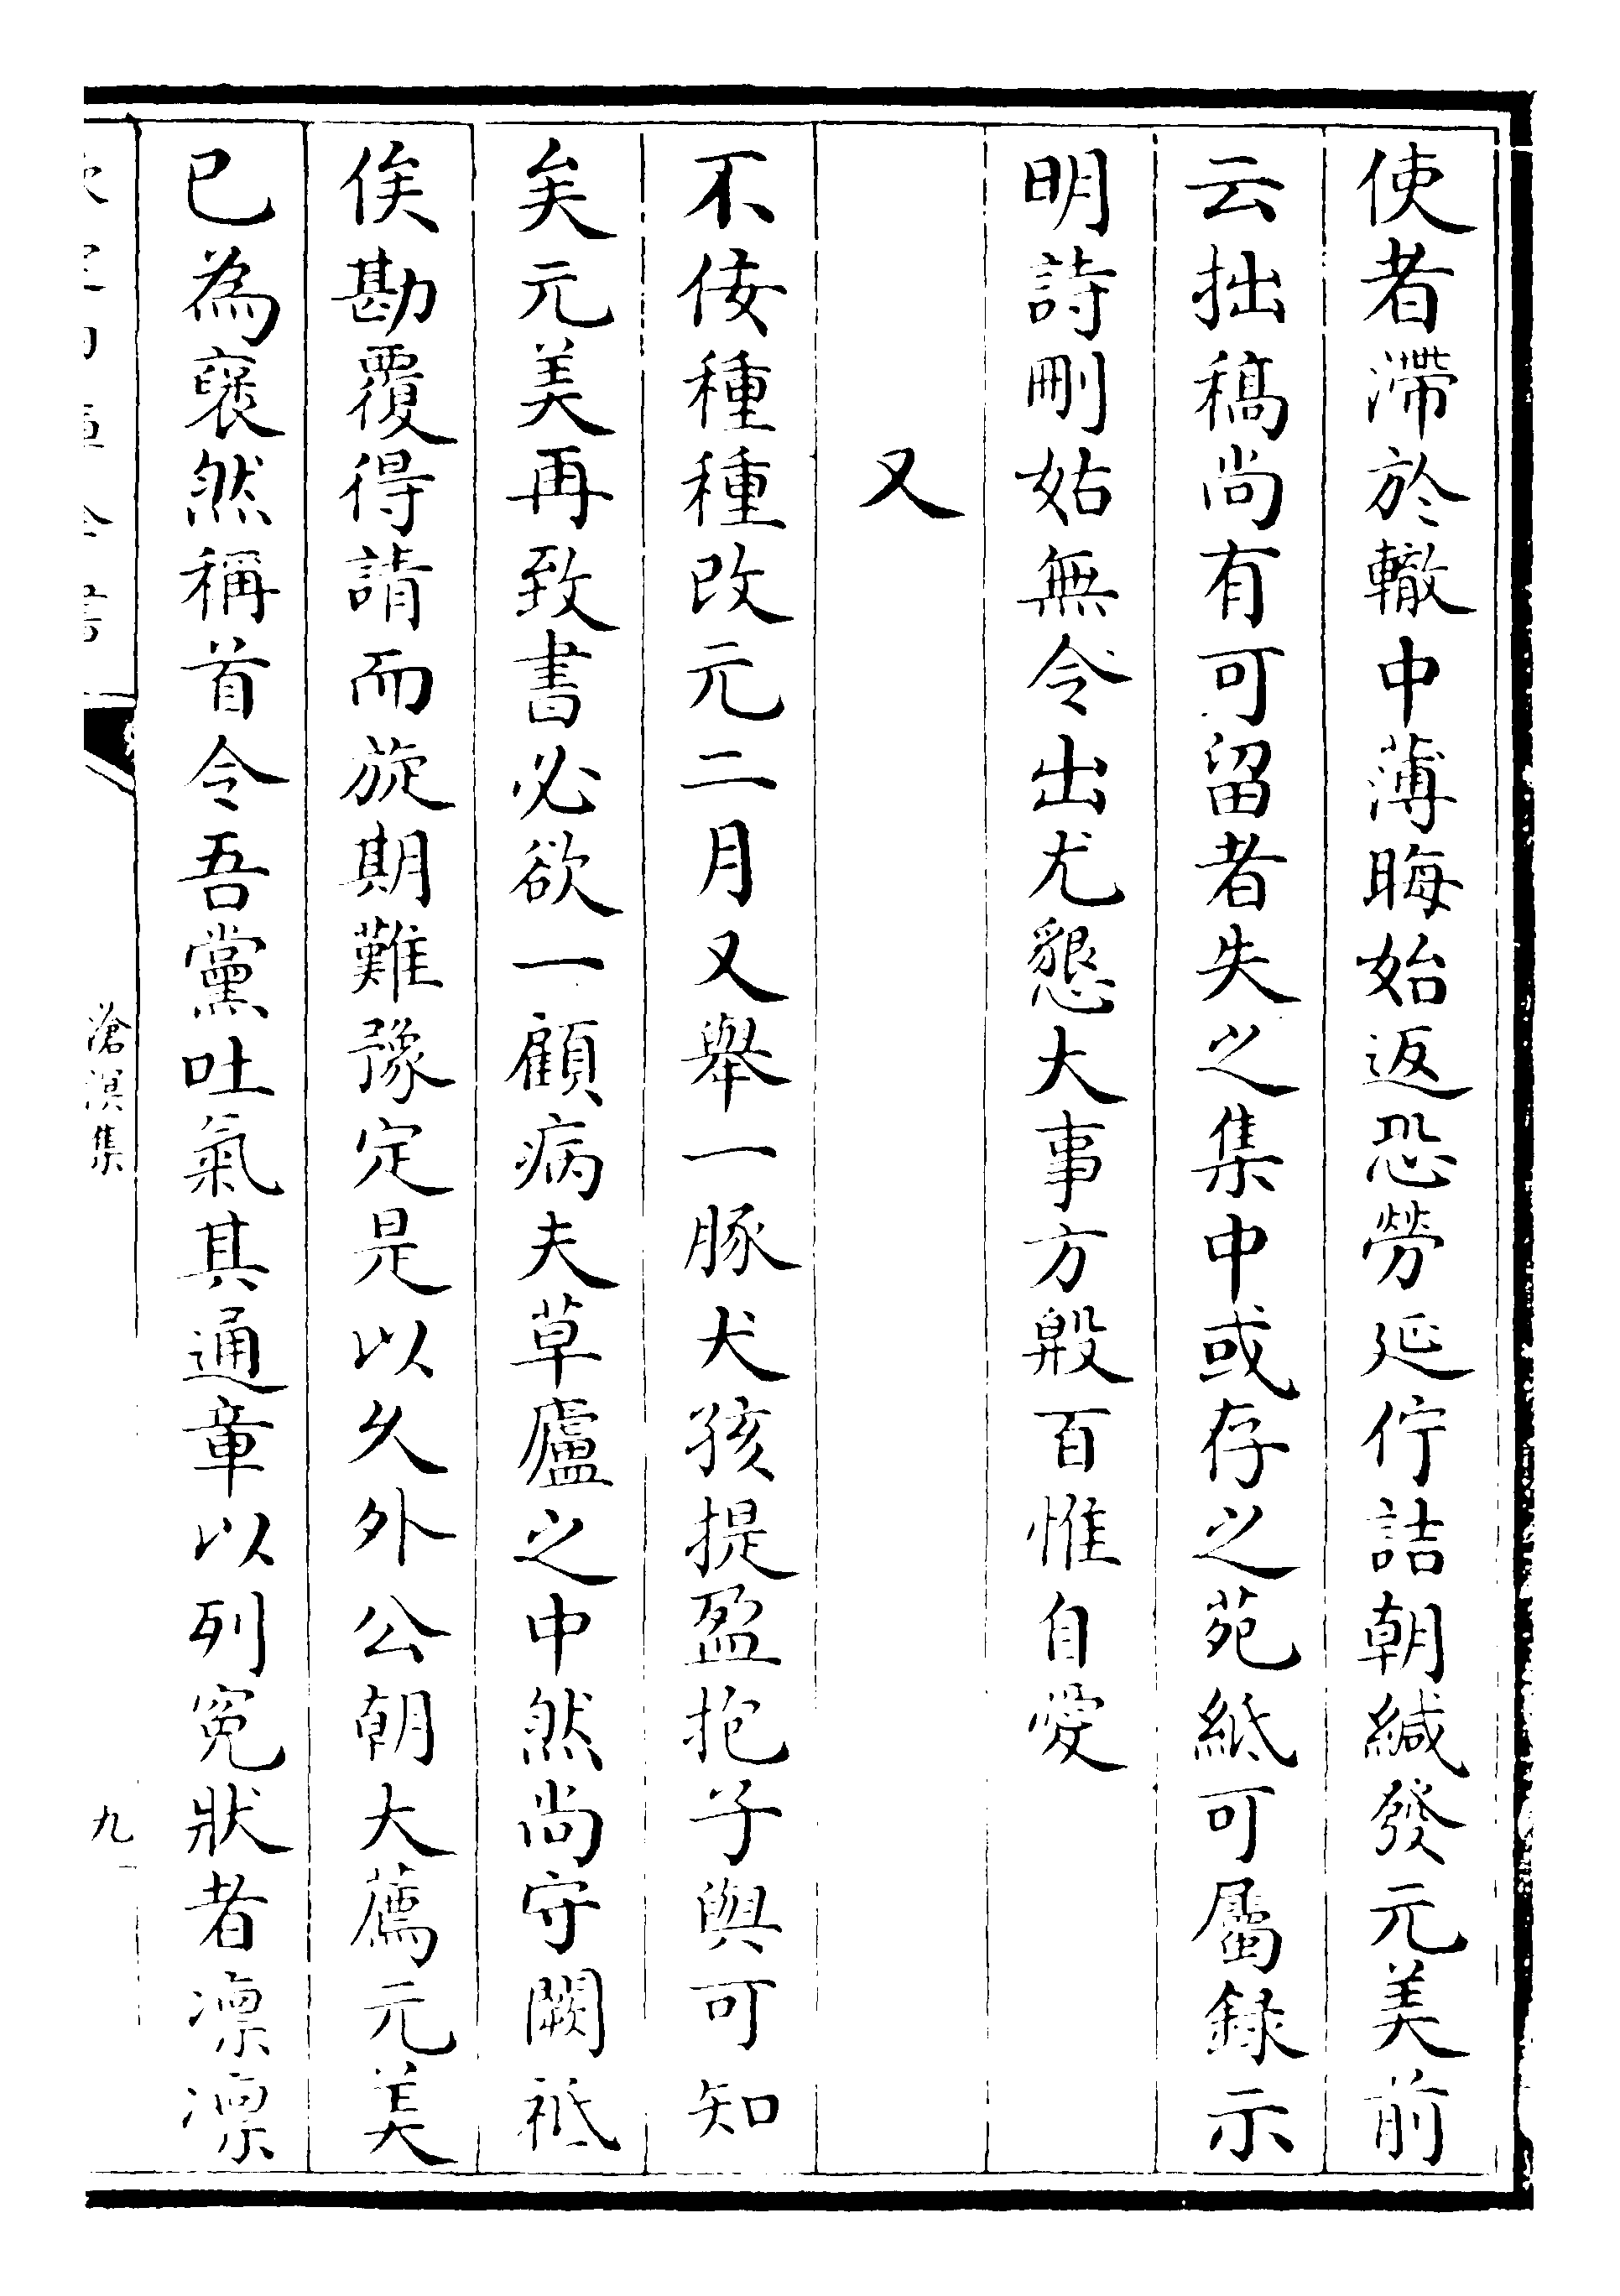 使者滯於轍中薄晦始返恐勞延佇詰朝緘發元美前
云拙稿尚有可留者失之集中或存之苑紙可屬錄示
明詩刪姑無令出尤懇大事方殷百惟自愛
又
不佞種種改元二月又舉一豚犬孩提盈抱子與可知
矣元美再致書必欲一顧病夫草廬之中然尚守闕祗
俟勘覆得請而旋期難豫定是以久外公朝大薦元美
已為裦然稱首令吾黨吐氣其通章以列冤狀者凛凛
滄溟集
九